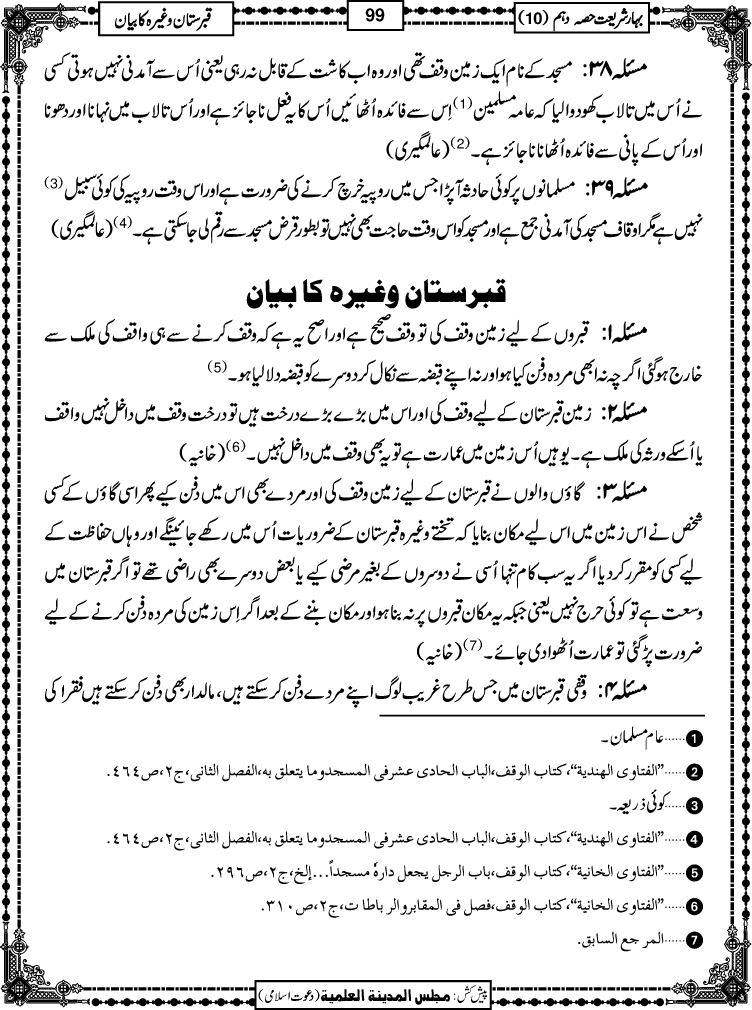 بہارِ شریعت حصہ دہم (10)
99
قبرستان وغیرہ کا بیان
مسئلہ ۳۸: مسجد کے نام ایک زمین وقف تھی اور وہ اب کاشت کے قابل نہ رہی یعنی اُس سے آمدنی نہیں ہوتی کسی
نے اُس میں تالاب کھودوالیا کہ عامہ مسلمین (1) اِس سے فائدہ اُٹھائیں اُس کا یہ فعل ناجائز ہے اور اُس تالاب میں نہانا اور دھونا
اور اُس کے پانی سے فائدہ اُٹھانا ناجائز ہے۔ (2) (عالمگیری)
مسئلہ ۳۹: مسلمانوں پر کوئی حادثہ آپڑا جس میں روپیہ خرچ کرنے کی ضرورت ہے اور اس وقت روپیہ کی کوئی سبیل (3)
نہیں ہے مگر اوقاف مسجد کی آمدنی جمع ہے اور مسجد کو اس وقت حاجت بھی نہیں تو بطور قرض مسجد سے رقم لی جاسکتی ہے۔ (4) (عالمگیری)
قبرستان وغیرہ کا بیان
مسئلہ ۱: قبروں کے لیے زمین وقف کی تو وقف صحیح ہے اور اصح یہ ہے کہ وقف کرنے سے ہی واقف کی ملک سے
خارج ہوگئی اگرچہ نہ ابھی مردہ دفن کیا ہو اور نہ اپنے قبضہ سے نکال کر دوسرے کو قبضہ دلایا ہو۔ (5)
مسئلہ ۲: زمین قبرستان کے لیے وقف کی اور اس میں بڑے بڑے درخت ہیں تو درخت وقف میں داخل نہیں واقف
یا اُسکے ورثہ کی ملک ہے۔ یوہیں اُس زمین میں عمارت ہے تو یہ بھی وقف میں داخل نہیں۔ (6) (خانیہ)
مسئلہ ۳: گاؤں والوں نے قبرستان کے لیے زمین وقف کی اور مردے بھی اس میں دفن کیے پھر اسی گاؤں کے کسی
شخص نے اس زمین میں اس لیے مکان بنایا کہ تختے وغیرہ قبرستان کے ضروریات اُس میں رکھے جائینگے اور وہاں حفاظت کے
لیے کسی کو مقرر کر دیا اگر یہ سب کام تنہا اُسی نے دوسروں کے بغیر مرضی کیے یا بعض دوسرے بھی راضی تھے تو اگر قبرستان میں
وسعت ہے تو کوئی حرج نہیں یعنی جبکہ یہ مکان قبروں پر نہ بنا ہو اور مکان بننے کے بعد اگر اِس زمین کی مردہ دفن کرنے کے لیے
ضرورت پڑ گئی تو عمارت اُٹھوا دی جائے۔ (7) (خانیہ)
مسئلہ ۴: وقفی قبرستان میں جس طرح غریب لوگ اپنے مردے دفن کر سکتے ہیں، مالدار بھی دفن کر سکتے ہیں فقرا کی
1 ......عام مسلمان۔
2 ......"الفتاوی الهندية"، كتاب الوقف، الباب الحادی عشر فی المسجد وما يتعلق به، الفصل الثانی، ج٢، ص٤٦٤.
3 ......کوئی ذریعہ۔
4 ......"الفتاوی الهندية"، كتاب الوقف، الباب الحادی عشر فی المسجد وما يتعلق به، الفصل الثانی، ج٢، ص٤٦٤.
5 ......"الفتاوی الخانية"، كتاب الوقف، باب الرجل يجعل دارهٗ مسجداً...إلخ، ج٢، ص٢٩٦.
6 ......"الفتاوی الخانية"، كتاب الوقف، فصل فی المقابر والرباطات، ج٢، ص٣١٠.
7 ......المرجع السابق.
پیش کش: مجلس المدينة العلمية (دعوت اسلامی)